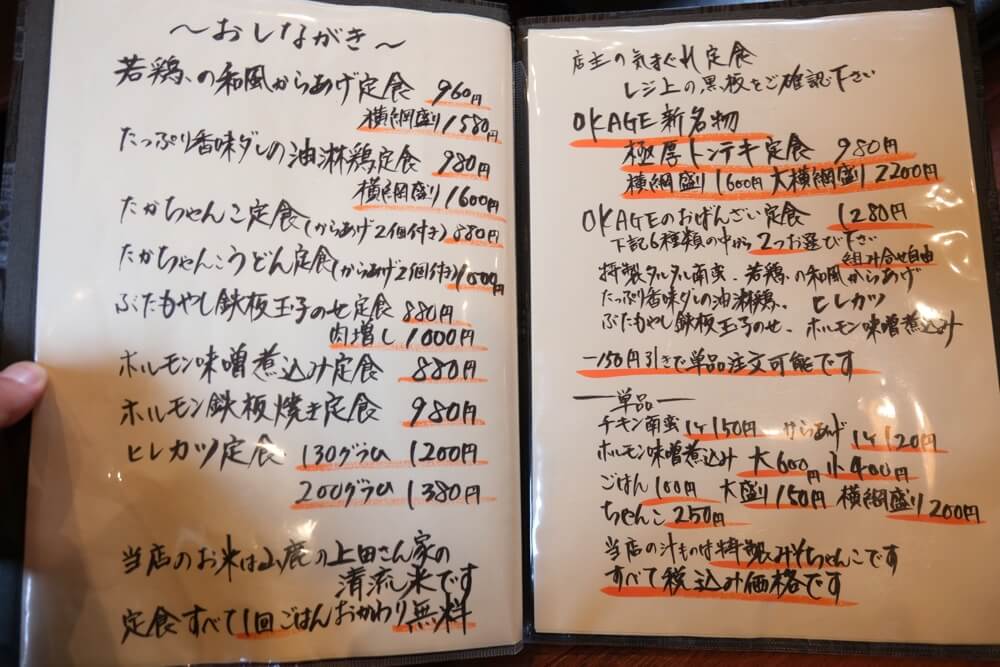 〜おしながき〜
若鶏の和風からあげ定食 960円
横綱盛り1580円
たっぷり香味ダレの油淋鶏定食 980円
横綱盛り1600円
たかちゃんこ定食(からあげ2個付き)880円
たかちゃんこうどん定食(からあげ2個付き)1000円
ぶたもやし鉄板玉子のせ定食 880円
肉増し 1000円
ホルモン味噌煮込み定食 880円
ホルモン鉄板焼き定食 980円
ヒレカツ定食 130グラム 1200円
200グラム 1380円
当店のお米は山鹿の上田さん家の
清流米です
定食すべて1回ごはんおかわり無料
店主の気まぐれ定食
レジ上の黒板をご確認下さい
OKAGE新名物
極厚トンテキ定食 980円
横綱盛り1600円 大横綱盛り2200円
OKAGEのおばんざい定食 1280円
下記6種類の中から2つお選び下さい
組み合せ自由
特製タルタル南蛮、若鶏の和風からあげ
たっぷり香味ダレの油淋鶏、ヒレカツ
ぶたもやし鉄板玉子のせ、ホルモン味噌煮込み
−150円引きで単品注文可能です
―単品―
チキン南蛮1ケ150円 からあげ1ケ120円
ホルモン味噌煮込み 大600円 小400円
ごはん100円 大盛り150円 横綱盛り200円
ちゃんこ250円
当店の汁ものは特製みそちゃんこです
すべて税込み価格です